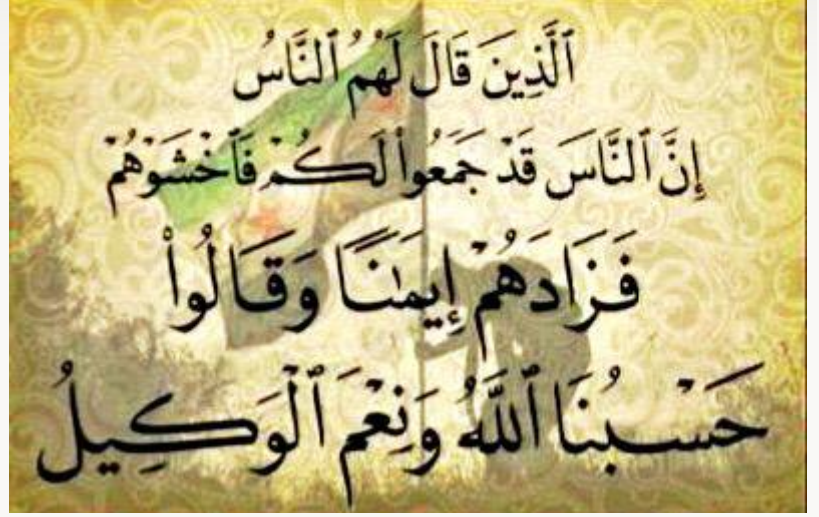 ٱلَّذِينَ قَالَ لَهُمُ ٱلنَّاسُ
إِنَّ ٱلنَّاسَ قَدْ جَمَعُوا۟ لَكُمْ فَٱخْشَوْهُمْ
فَزَادَهُمْ إِيمَـٰنًا وَقَالُوا۟
حَسْبُنَا ٱللَّهُ وَنِعْمَ ٱلْوَكِيلُ